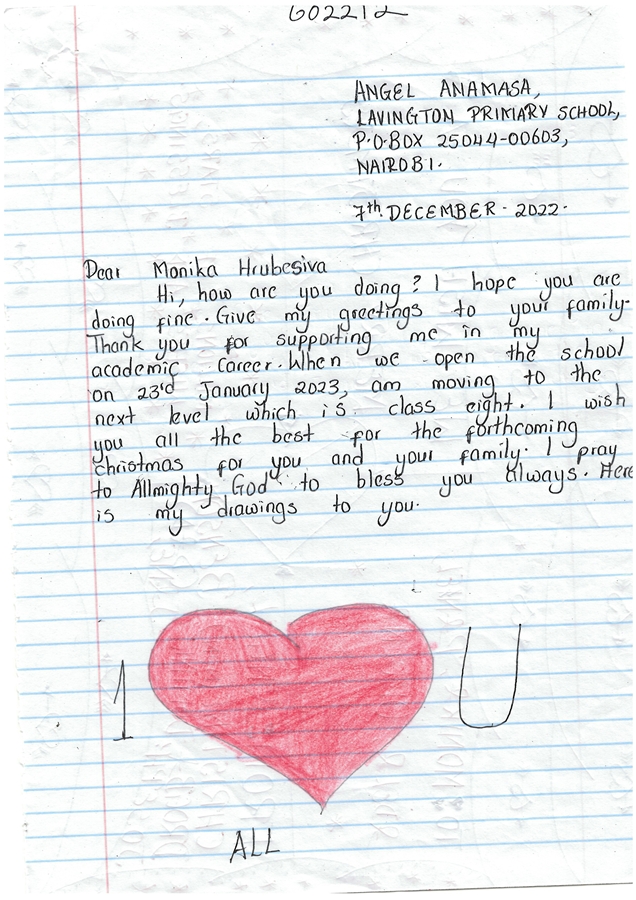 G02212
ANGEL ANAMASA,
LAVINGTON PRIMARY SCHOOL,
P.O.BOX 25044-00603,
NAIROBI.
7th DECEMBER. 2022.
Dear Monika Hrubesiva
Hi, how are you doing? I hope you are
doing fine. Give my greetings to your family.
Thank you for supporting me in my
academic career. When we open the school
on 23rd January 2023, am moving to the
next level which is class eight. I wish
you all the best for the forthcoming
christmas for you and your family. I pray
to Allmighty God to bless you always. Here
is my drawings to you.
I U
ALL